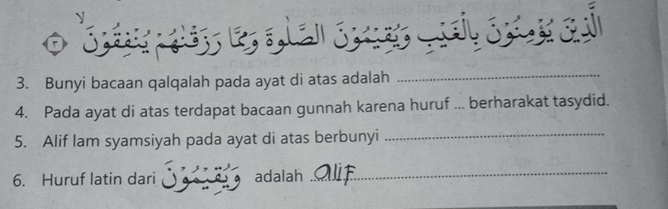 الَّذِيْنَ يُؤْمِنُوْنَ بِالْغَيْبِ وَيُقِيْمُوْنَ الصَّلٰوةَ وَمِمَّا رَزَقْنٰهُمْ يُنْفِقُوْنَۙ ٣
3. Bunyi bacaan qalqalah pada ayat di atas adalah
4. Pada ayat di atas terdapat bacaan gunnah karena huruf ... berharakat tasydid.
5. Alif lam syamsiyah pada ayat di atas berbunyi
6. Huruf latin dari وَيُقِيْمُوْنَ adalah alif